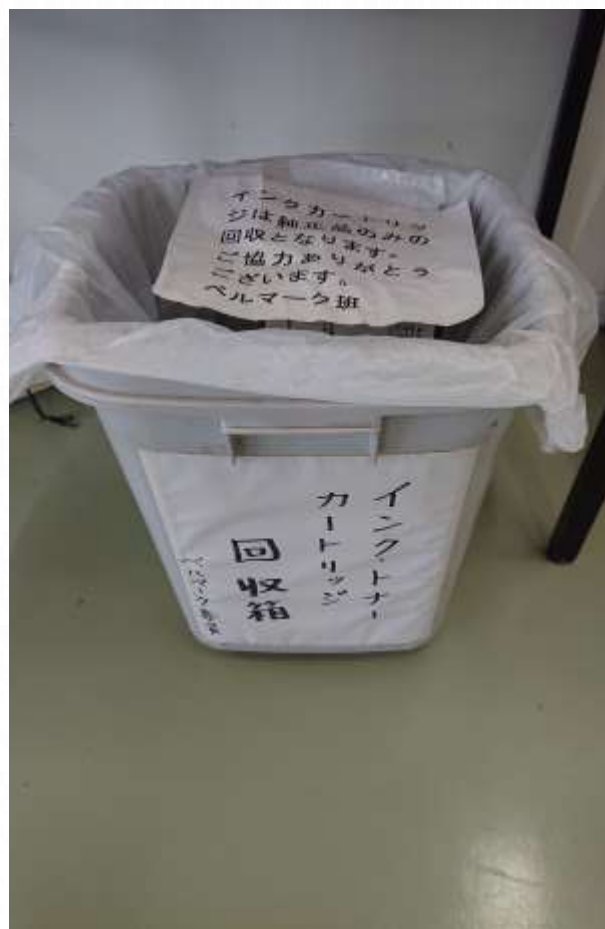 インクカートリッ
ジは純正品のみの
回収となります。
ご協力ありがとう
ございます。
ベルマーク班
インク・トナー
カートリッジ
回収箱